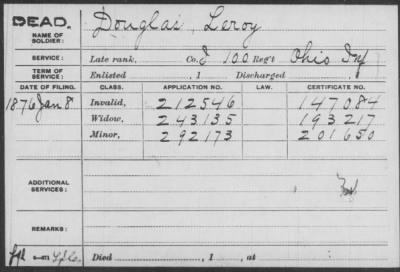 DEAD.
NAME OF SOLDIER: Douglas, Leroy
SERVICE: Late rank, Co. I 100 Reg't Ohio Inf
TERM OF SERVICE: Enlisted , 1 Discharged , 1
DATE OF FILING. CLASS. APPLICATION NO. LAW. CERTIFICATE NO.
1876 Jan 8 Invalid, 212546 147084
Widow, 243135 193217
Minor, 292173 201650
ADDITIONAL SERVICES:
REMARKS:
Died , 1 , at